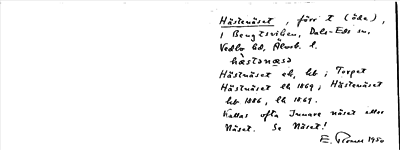 Hästenäset, förr t (öde),
i Bengtsviken, Dals-Eds sn,
Vedbo hd, Älvsb. l.
hästanæsə
Hästnäset ek, hb; Torpet
Hästnäset lh 1869; Hästenäset
hb 1886, lh 1869.
Kallas ofta Innare näset eller
Näset. Se Näset!
E. 1950